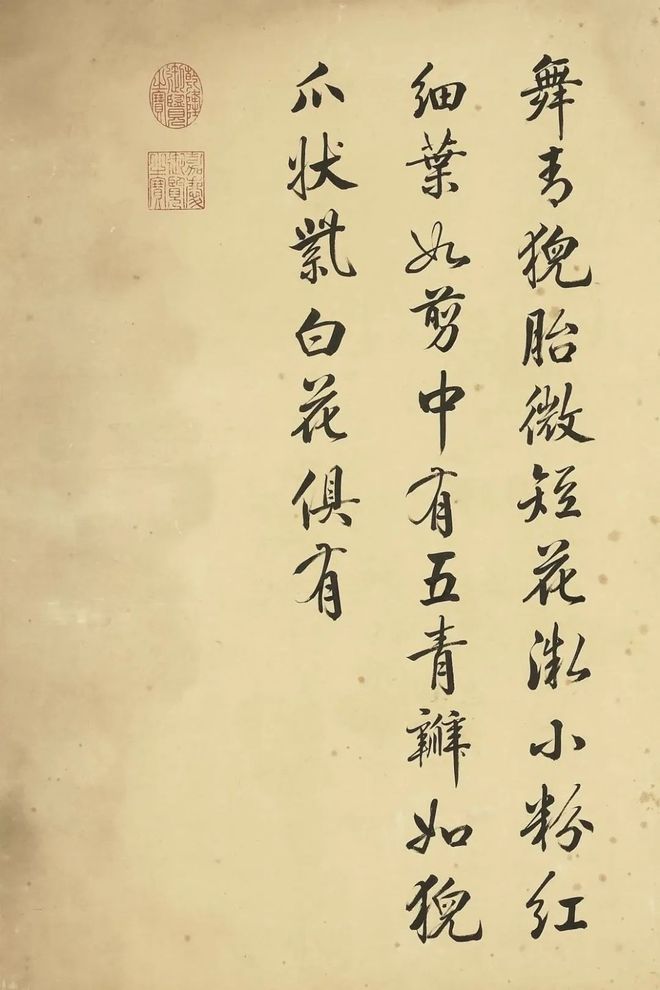 舞青猊胎微短花微小粉紅
細葉如剪中有五青瓣如猊
爪狀紫白花俱有
乾隆御覽之寶
嘉慶御覽之寶